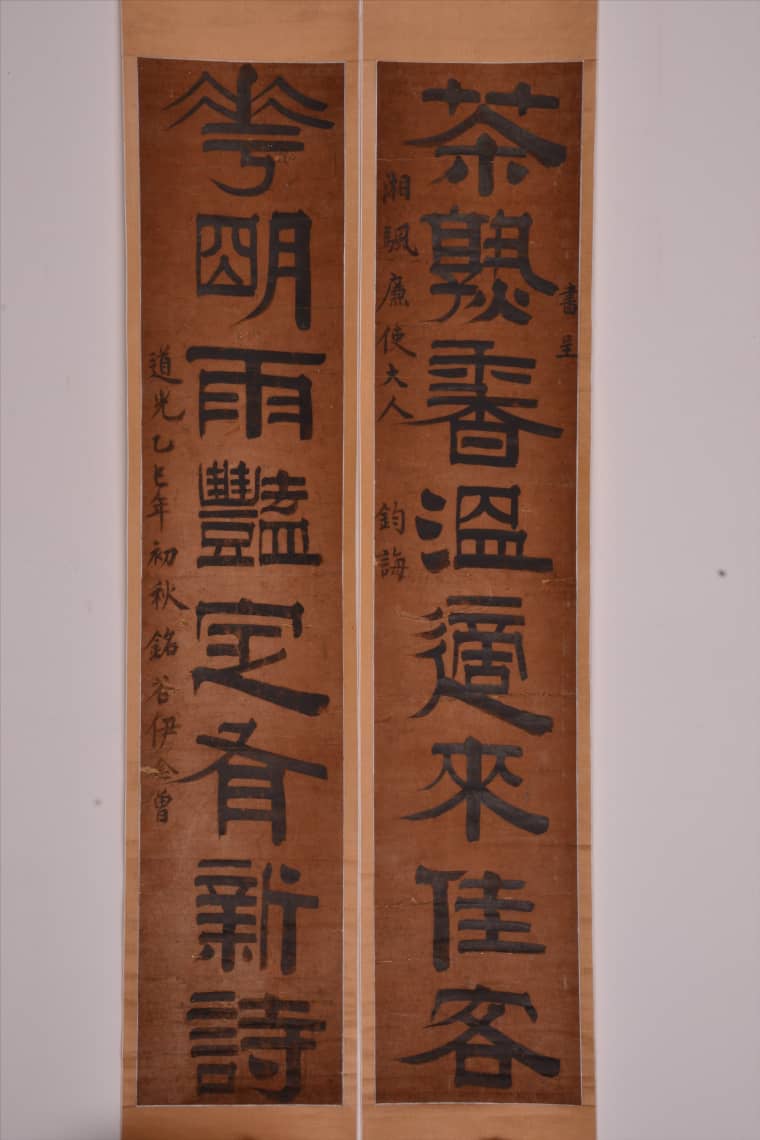 書呈
茶熟香溫適來佳客
湘颿廉使大人
鈞誨
華朙雨豔定有新詩
道光乙巳年初秋銘谷伊念曾